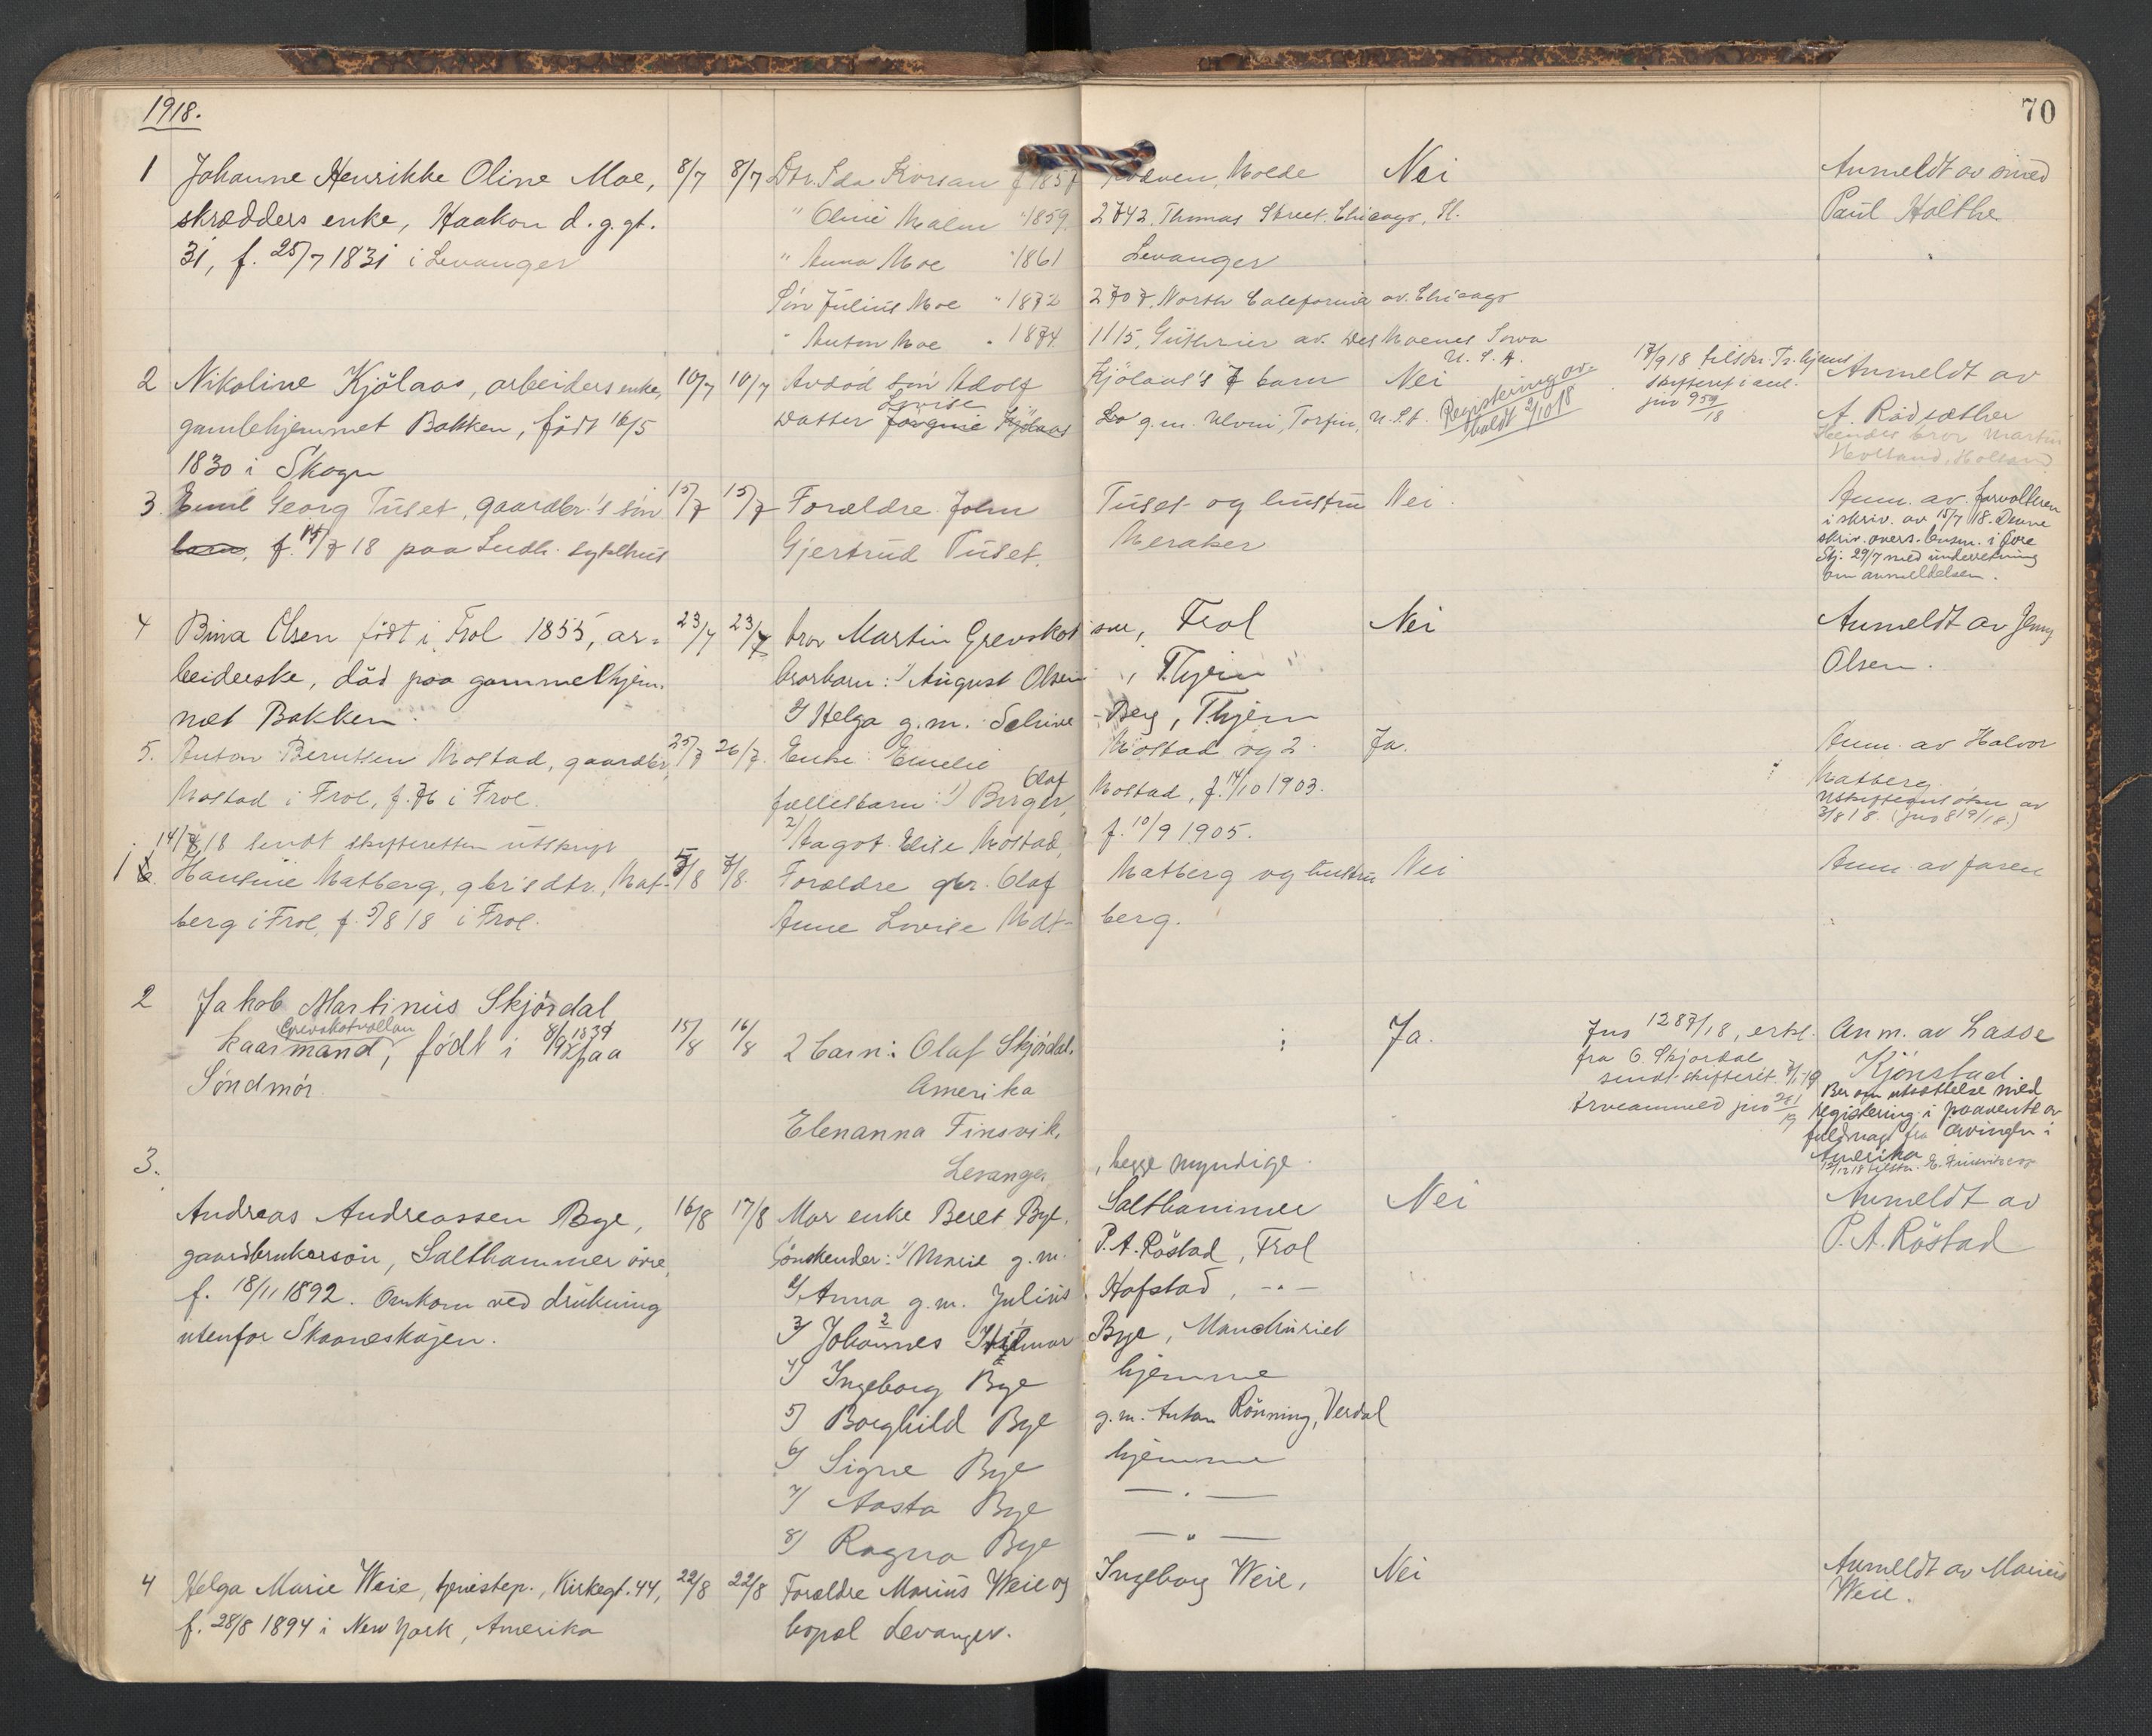 1918.
70
1 Johanne Henrikke Oline Moe, 8/7 8/7 Dtr. Ida Korsan f. 1857 Molde Nei Anmeldt av smed
skrædders enke, Haakon d. g. gt. " Oline Malm " 1859. 2742, Thomas Street. Chicago, Il. Paul Holthe
31, f. 25/7 1831 i Levanger " Anna Moe " 1861 Levanger
Søn Julius Moe " 1872 2707, North California av. Chicago
" Anton Moe " 1874 1115, av. Des Moenes Iowa
U. S. A.
2 Nikoline Kjölaas, arbeiders enke, 10/7 10/7 Avdød søn Adolf Kjölaas's 7 barn Nei Registering av- holdt 2/10 18 17/9 18 tilskr. Tr.hjems Anmeldt av
skifteret i anl.
jnr 959/18
gamlehjemmet Bakken, født 16/5 Datter Lovise Kjölaas g. m. Ulvni, Torfin, U.S.A. A. Rödsæther
1830 i Skogn Hendes bror Martin
Holland, Holland
3. Emil Georg Tuset, gaardbr.'s søn 15/7 15/7 Forældre John Tuset og hustru Nei. Anm. av farvolteren
barn, f. 14/7 18 paa Indh. sykehus Gjertrud Tuset. Meraker i skriv. av 15/7 18. Denne
skriv. overs. lensm. i øvre
Stj. 29/7 med underretning
om anmeldelsen.
4 Bina Olsen født i Frol 1855, ar= 23/7 23/7 bror Martin Grevskot svе, Frol Nei Anmeldt av Jenny
beiderske, död paa gammelhjem. brorbarn: 1) August Olsen, T.hjem Olsen.
met Bakken. 2) Helga g. m. Selive -Berg, T.hjem
5. Anton Berntsen Mostad, gaardbr, 25/7 26/7. Enke: Emelie Mostad og 2 Ja. Anm. av Halvor
Mostad i Frol, f. 76 i Frol. fællesbarn: 1) Birger Olaf Mostad, f. 14/10 1903. Matberg.
3/8 18. (jno 819/18.)
14/8 18 sendt skifteretten utskrift 2) Aagot Elise Mostad, f. 10/9 1905.
1 6. Hansine Matberg, gbr's dtr., Mat- 5/8 7/8. Forældre gbr. Olaf Matberg og hustru Nei Anm. av faren
berg i Frol, f. 5/8 18 i Frol. Anne Lovise Mat- berg.
2 Jakob Martinus Skjördal
Grevskotvollan
kaarmand, født i 8/9 1834 paa 15/8 16/8 2 barn: Olaf Skjördal. Ja. Jno 1287/18, erkl. Anm. av Lasse
Söndmör. Amerika fra O. Skjördal Kjönstad
sendt skifteret. 7/1-19 Ber om utsættelse med
Elenanna Finsvik, Arveanmeld jno 281/19 registering i paavente av
fuldmagt fra arvingen i
Levanger, begge myndige. Amerika
3.
Andreas Andreassen Bye, 16/8 17/8 Mor enke Beret Bye. Salthammer Nei Anmeldt av
gaardbrukersøn, Salthammer øvre, Søskender: 1) Marie g. m. P. A. Röstad, Frol P. A. Röstad
f. 18/11 1892. Omkom ved drukning 2) Anna g. m. Julius Hofstad, -"-
utenfor Skaaneskajen. 3) Johannes Hilmar Bye, Mandkuriet
4) Ingeborg Bye hjemme
5) Borghild Bye g. m. Anton Rönning, Verdal
6) Signe Bye hjemme
7) Aasta Bye — " —
8) Ragna Bye — " —
4 Helga Marie Weie, tjenestep., Kirkegt. 44, 22/8 22/8 Forældre Marius Weie og Ingeborg Weie, Nei Anmeldt av Marius
f. 28/8 1894 i New York, Amerika bopel Levanger. Weie.